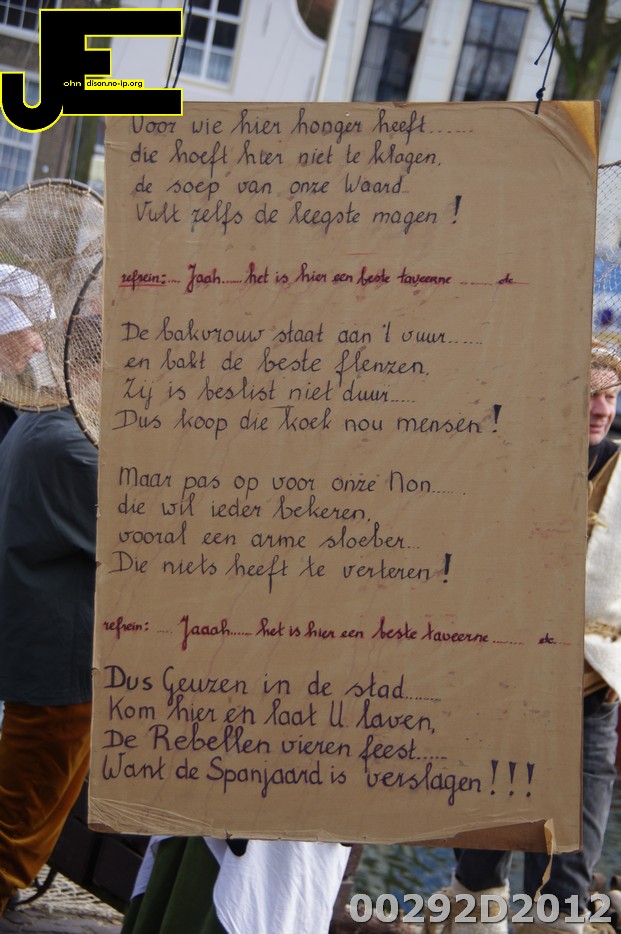 JE
ohn dison.no-ip.org
Voor wie hier honger heeft.......
die hoeft hier niet te klagen,
de soep van onze Waard..
Vult zelfs de leegste magen !
refrein:.... Jaah...... het is hier een beste taveerne ........ etc....
De bakvrouw staat aan 't vuur......
en bakt de beste flenzen,
Zij is beslist niet duur.....
Dus koop die koek nou mensen !
Maar pas op voor onze Non.....
die wil ieder bekeren,
vooral een arme sloeber...
Die niets heeft te verteren !
refrein: .... Jaaah...... het is hier een beste taveerne ........ etc....
Dus Geuzen in de stad........
Kom hier en laat U laven,
De Rebellen vieren feest.....
Want de Spanjaard is verslagen ! ! !
00292D2012